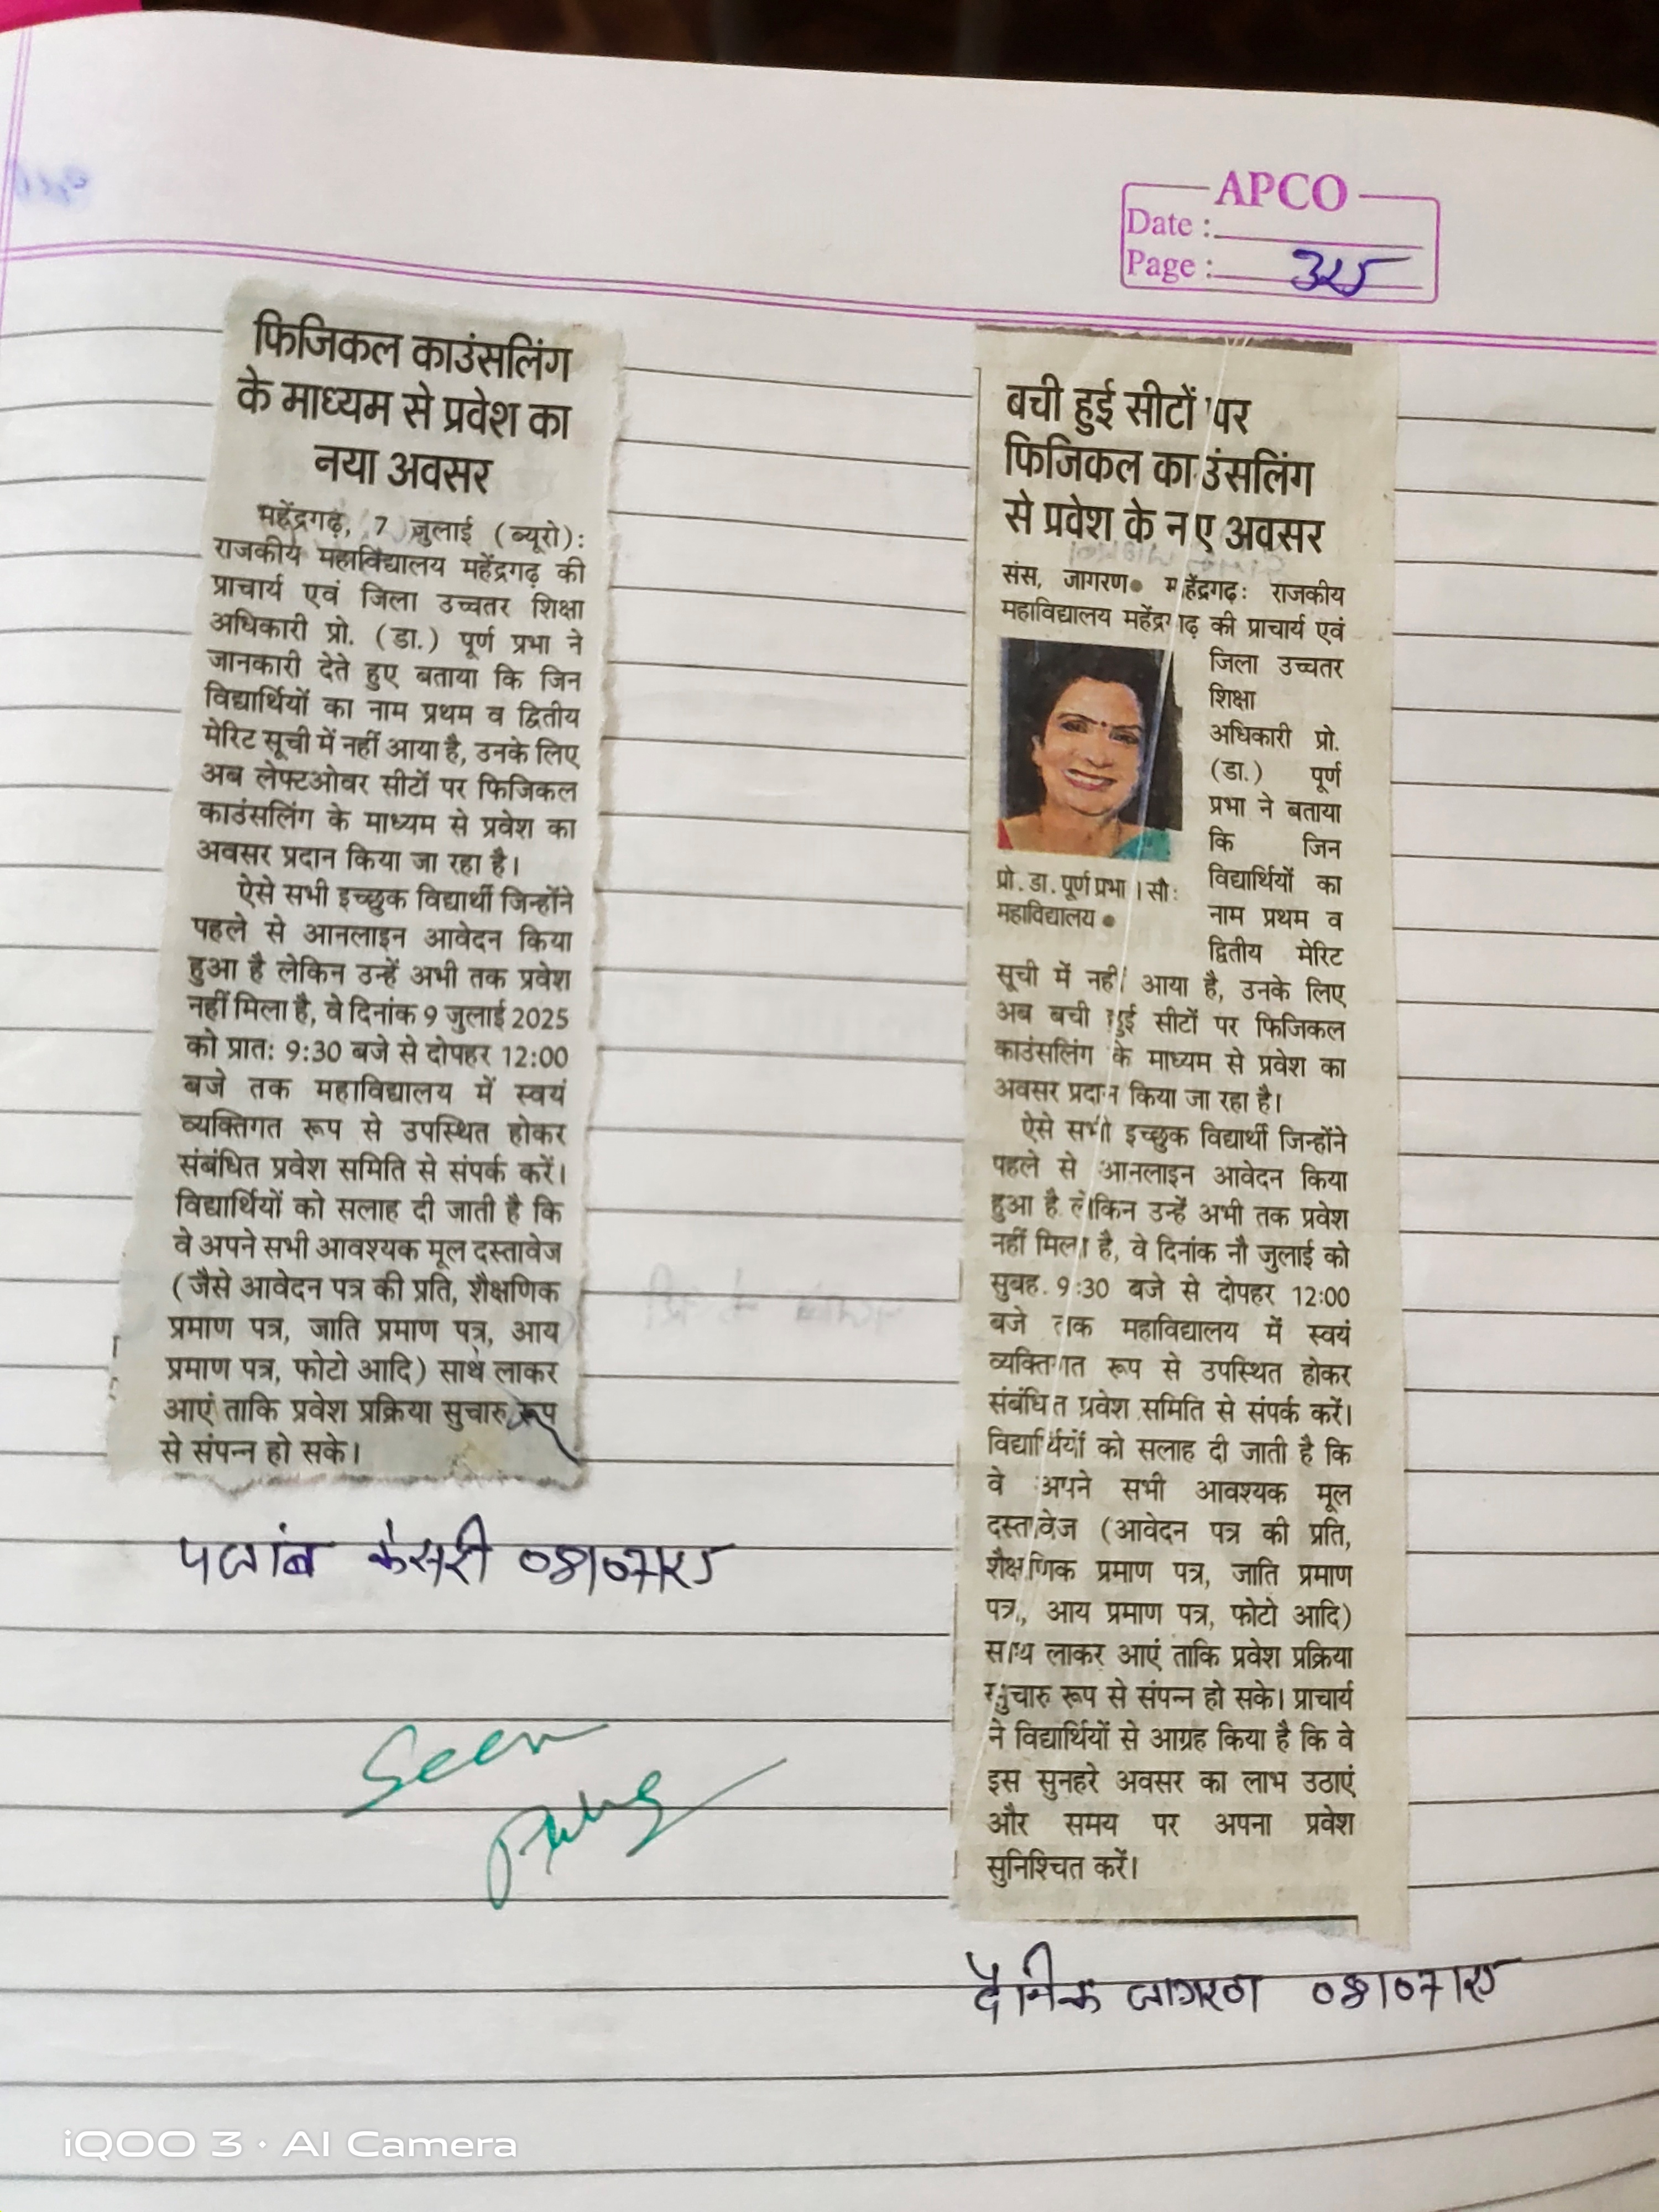 APCO
Date :
Page : 325
फिजिकल काउंसलिंग
के माध्यम से प्रवेश का
नया अवसर
महेंद्रगढ़, 7 जुलाई (ब्यूरो):
राजकीय महाविद्यालय महेंद्रगढ़ की
प्राचार्य एवं जिला उच्चतर शिक्षा
अधिकारी प्रो. (डा.) पूर्ण प्रभा ने
जानकारी देते हुए बताया कि जिन
विद्यार्थियों का नाम प्रथम व द्वितीय
मेरिट सूची में नहीं आया है, उनके लिए
अब लेफ्टओवर सीटों पर फिजिकल
काउंसलिंग के माध्यम से प्रवेश का
अवसर प्रदान किया जा रहा है।
ऐसे सभी इच्छुक विद्यार्थी जिन्होंने
पहले से आनलाइन आवेदन किया
हुआ है लेकिन उन्हें अभी तक प्रवेश
नहीं मिला है, वे दिनांक 9 जुलाई 2025
को प्रात: 9:30 बजे से दोपहर 12:00
बजे तक महाविद्यालय में स्वयं
व्यक्तिगत रूप से उपस्थित होकर
संबंधित प्रवेश समिति से संपर्क करें।
विद्यार्थियों को सलाह दी जाती है कि
वे अपने सभी आवश्यक मूल दस्तावेज
(जैसे आवेदन पत्र की प्रति, शैक्षणिक
प्रमाण पत्र, जाति प्रमाण पत्र, आय
प्रमाण पत्र, फोटो आदि) साथ लाकर
आएं ताकि प्रवेश प्रक्रिया सुचारु रूप
से संपन्न हो सके।
पंजाब केसरी 08/07/25
Seen
बची हुई सीटों पर
फिजिकल काउंसलिंग
से प्रवेश के नए अवसर
संस, जागरण● महेंद्रगढ़: राजकीय
महाविद्यालय महेंद्रगढ़ की प्राचार्य एवं
जिला उच्चतर
शिक्षा
अधिकारी प्रो.
(डा.) पूर्ण
प्रभा ने बताया
कि जिन
विद्यार्थियों का
नाम प्रथम व
द्वितीय मेरिट
प्रो. डा. पूर्ण प्रभा । सौ:
महाविद्यालय ●
सूची में नहीं आया है, उनके लिए
अब बची हुई सीटों पर फिजिकल
काउंसलिंग के माध्यम से प्रवेश का
अवसर प्रदान किया जा रहा है।
ऐसे सभी इच्छुक विद्यार्थी जिन्होंने
पहले से आनलाइन आवेदन किया
हुआ है लेकिन उन्हें अभी तक प्रवेश
नहीं मिला है, वे दिनांक नौ जुलाई को
सुबह 9:30 बजे से दोपहर 12:00
बजे तक महाविद्यालय में स्वयं
व्यक्तिगत रूप से उपस्थित होकर
संबंधित प्रवेश समिति से संपर्क करें।
विद्यार्थियों को सलाह दी जाती है कि
वे अपने सभी आवश्यक मूल
दस्तावेज (आवेदन पत्र की प्रति,
शैक्षणिक प्रमाण पत्र, जाति प्रमाण
पत्र, आय प्रमाण पत्र, फोटो आदि)
साथ लाकर आएं ताकि प्रवेश प्रक्रिया
सुचारु रूप से संपन्न हो सके। प्राचार्य
ने विद्यार्थियों से आग्रह किया है कि वे
इस सुनहरे अवसर का लाभ उठाएं
और समय पर अपना प्रवेश
सुनिश्चित करें।
दैनिक जागरण 08/07/25
iQOO 3 · AI Camera